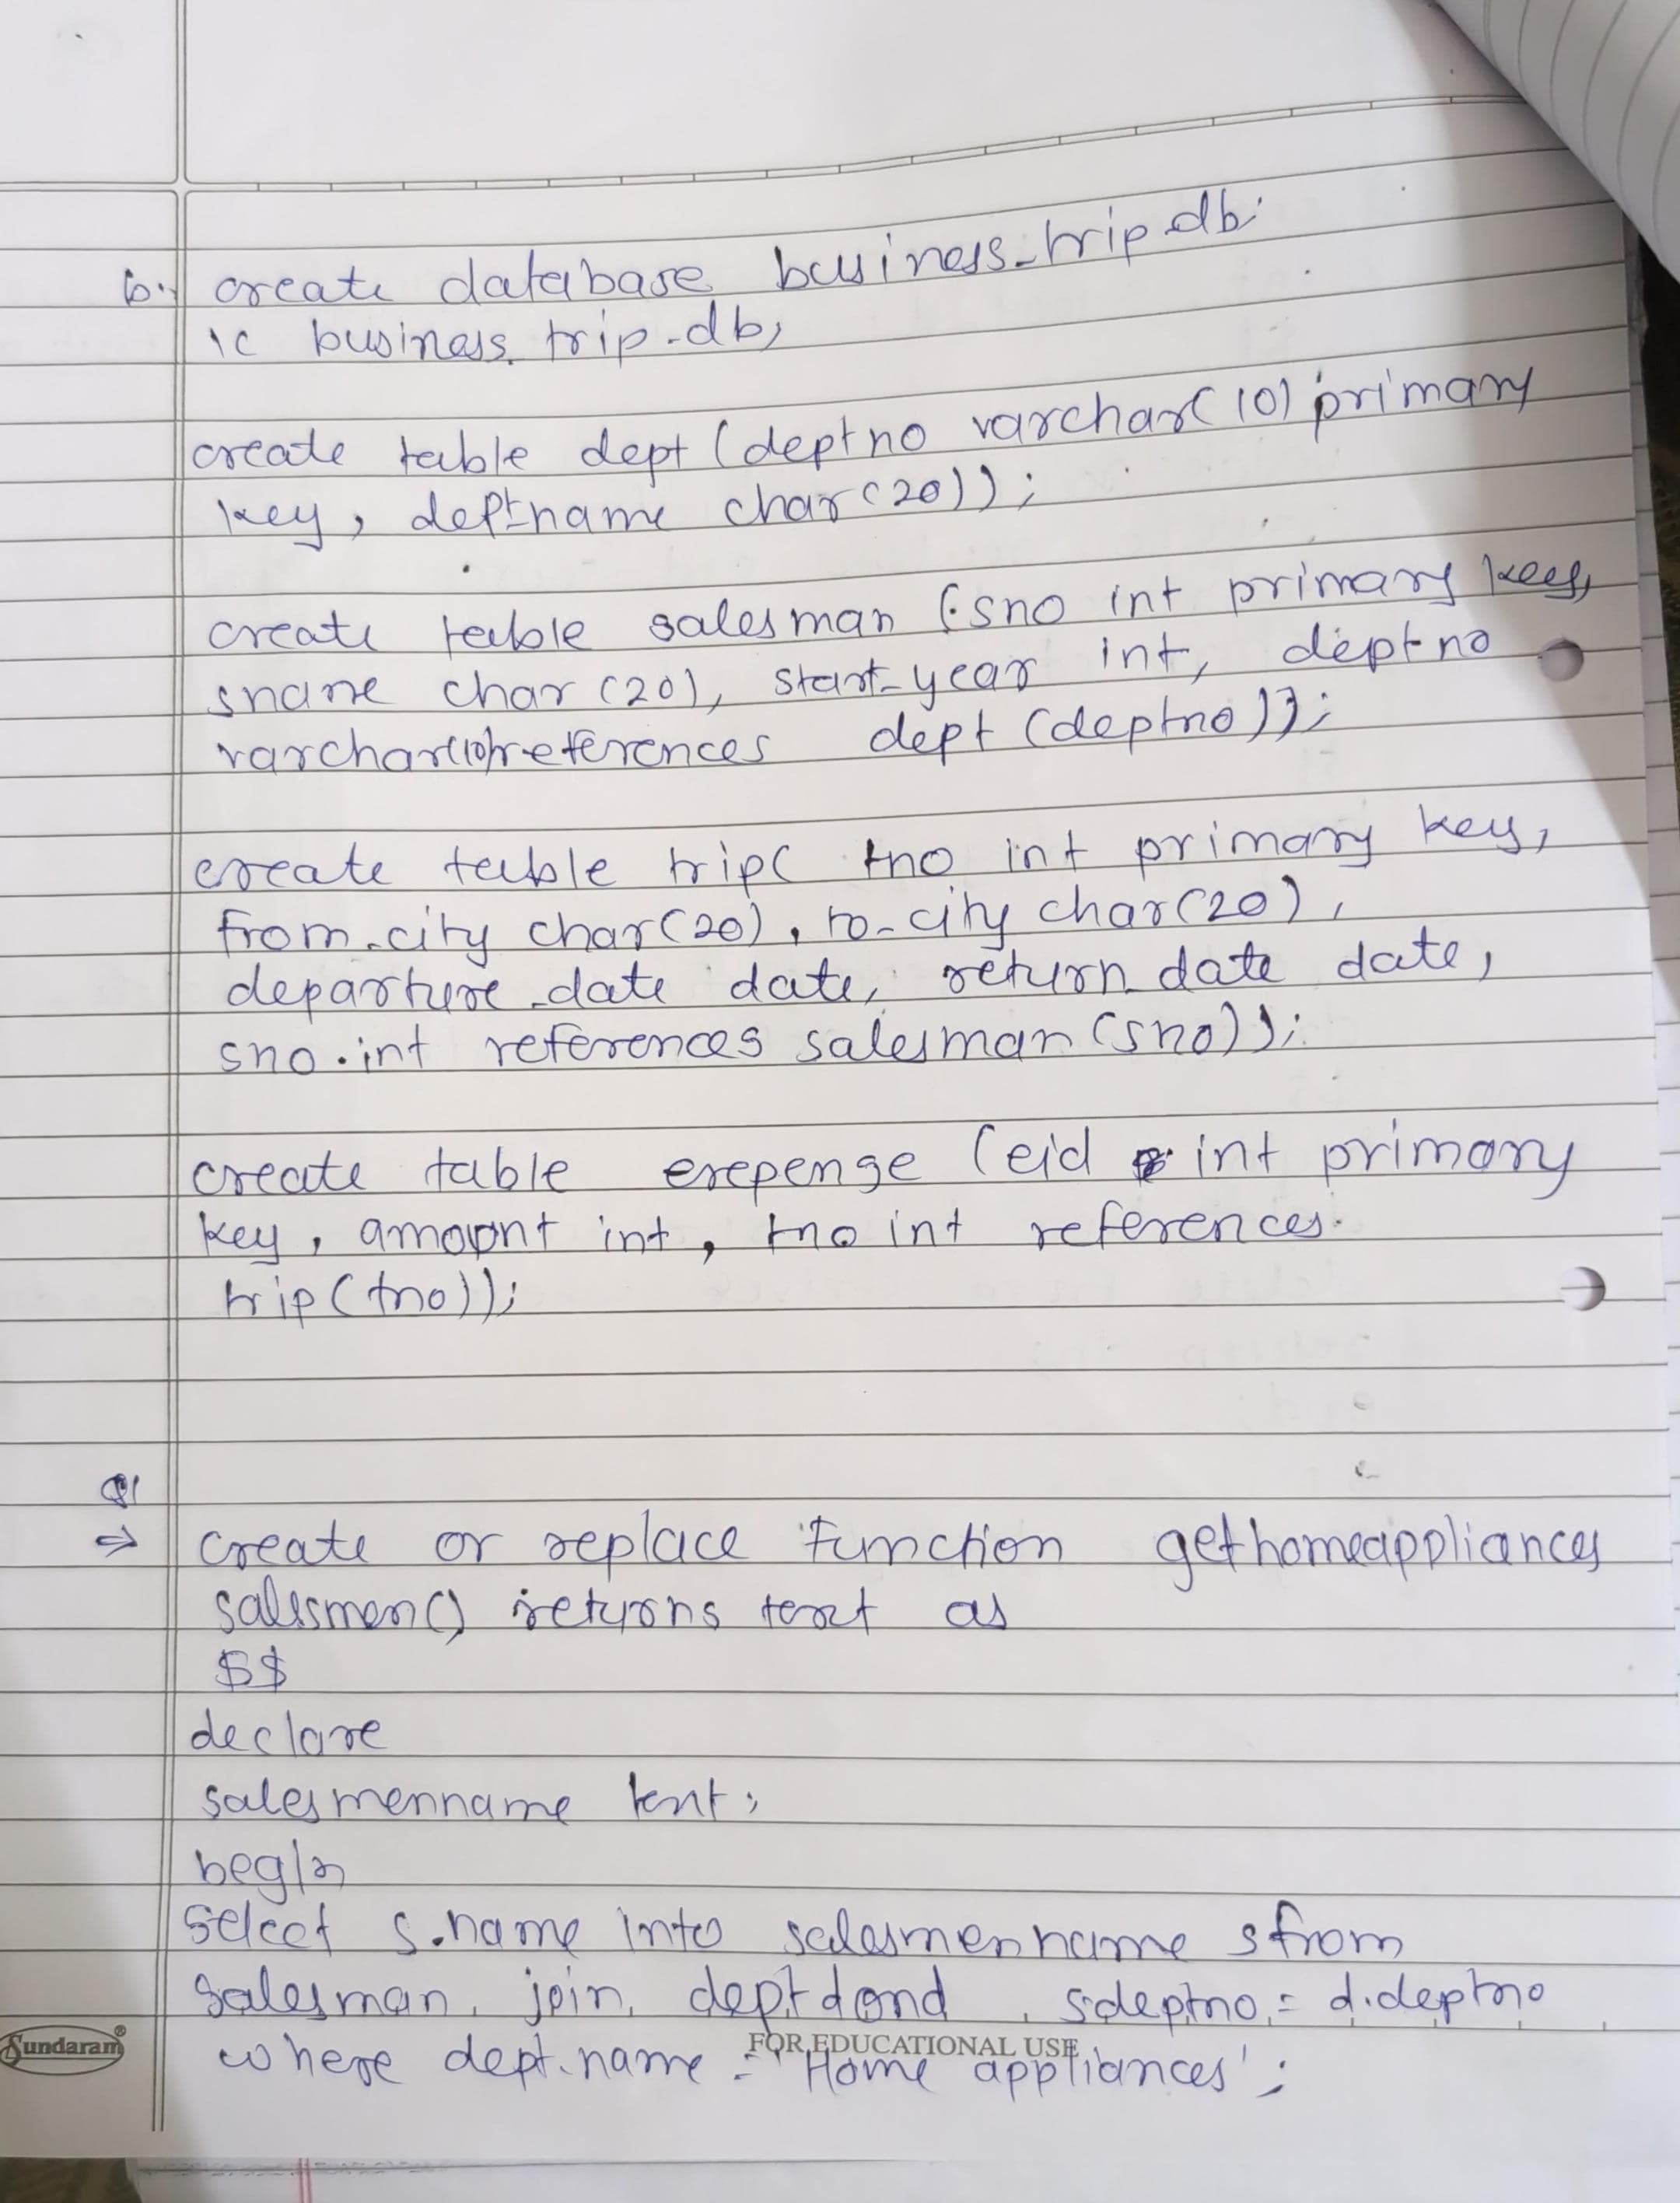 b. create database business_trip_db
\c business_trip_db;
create table dept (deptno varchar(10) primary
key, deptname char(20));
create table salesman (sno int primary key,
sname char(20), start_year int, deptno
varchar(10) references dept (deptno));
create table trip( tno int primary key,
from_city char(20), to_city char(20),
departure_date date, return_date date,
sno int references salesman(sno));
create table expense (eid int primary
key, amount int, tno int references
trip(tno));
Q1
⇒ create or replace function gethomeappliances
salesmen() returns text as
$$
declare
salesmenname text;
begin
select s.name into salesmenname s from
salesman join dept d on d s.deptno = d.deptno
where dept.name = 'Home appliances';
Sundaram®
FOR EDUCATIONAL USE